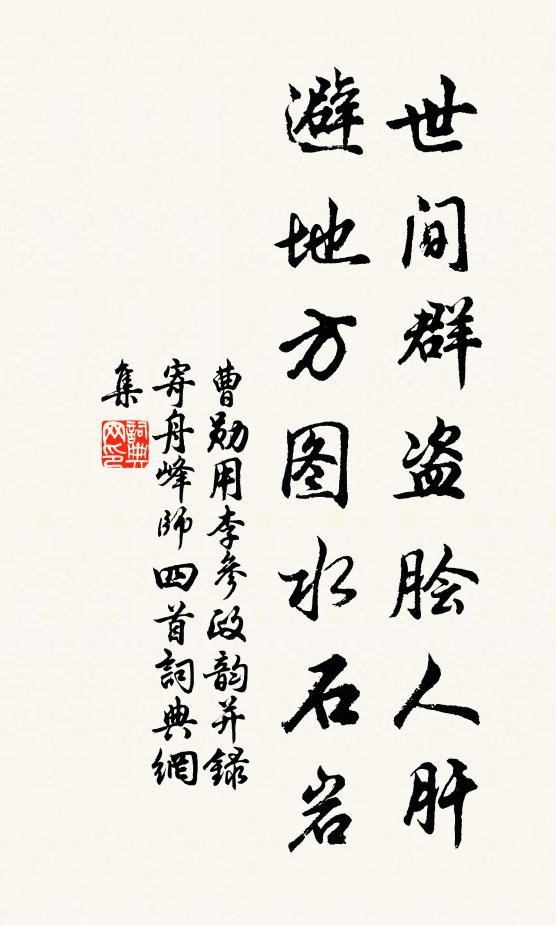 世间群盗脍人肝
避地方图水石岩
曹勋用李参政韵并録
寄舟峰师四首詞典網
集
詞典網印